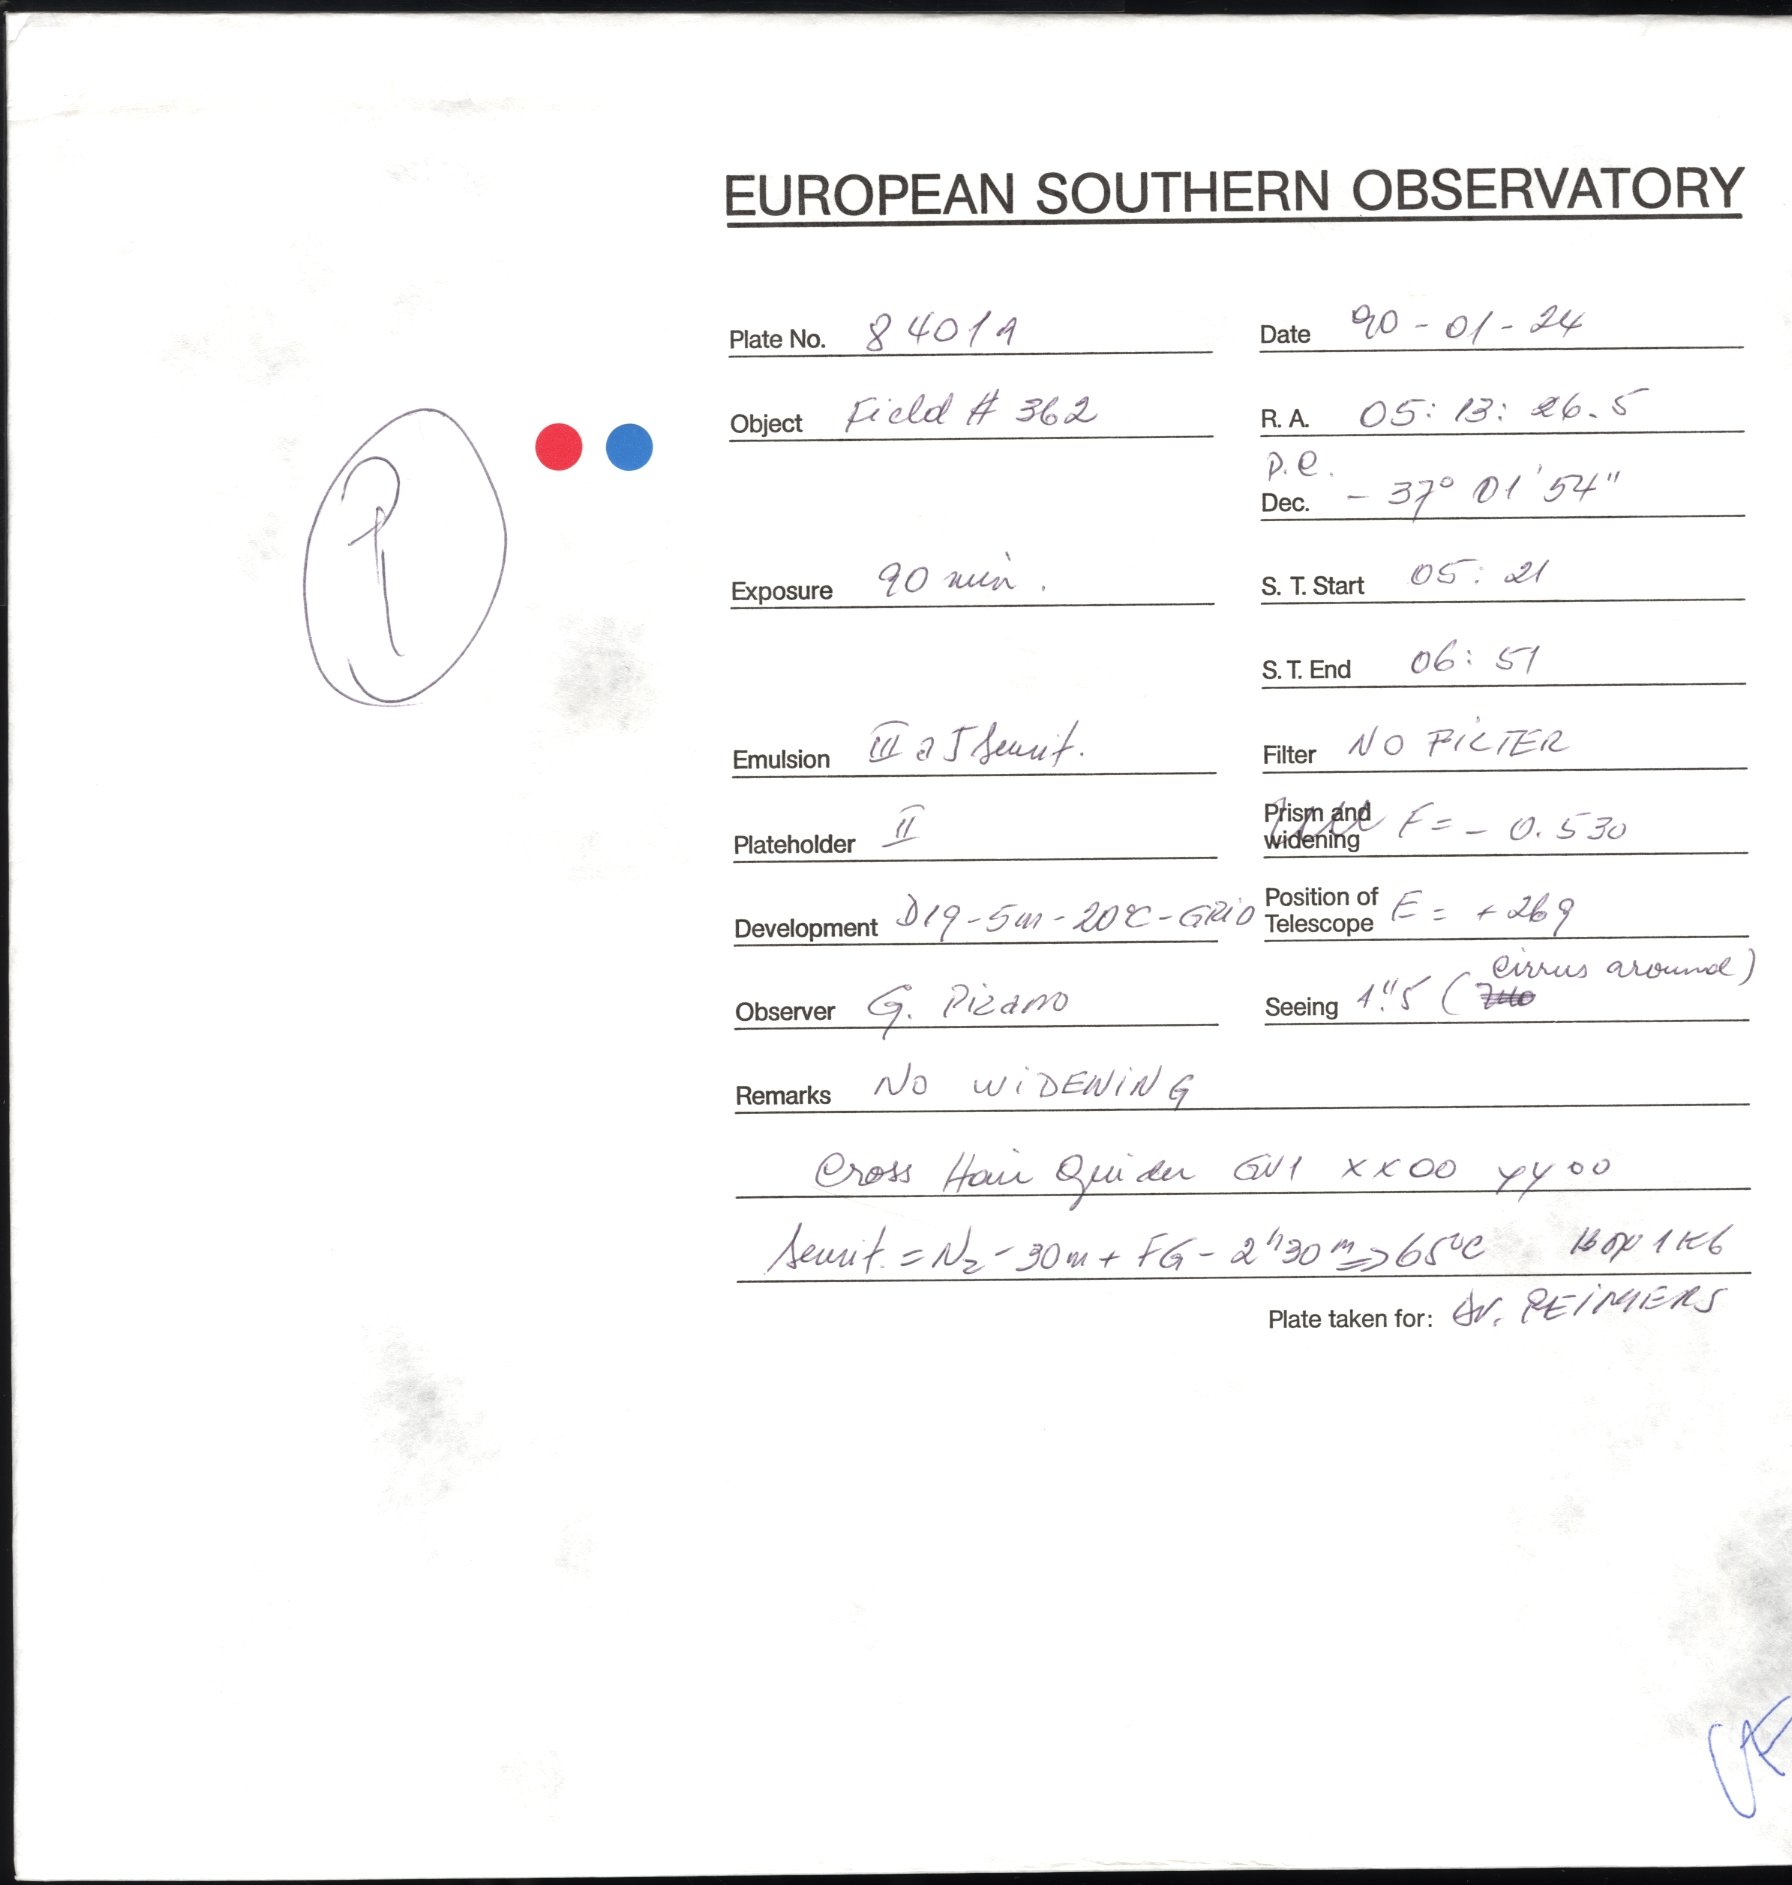 EUROPEAN SOUTHERN OBSERVATORY
Plate No. 8401A
Date 90-01-24
Object Field # 362
R. A. 05: 13: 26.5
P.e.
Dec. - 37° 01' 54"
Exposure 90 min.
S. T. Start 05: 21
S. T. End 06: 51
Emulsion III a J Sensit.
Filter NO FILTER
Plateholder II
Prism and widening F= - 0.530
Development D19-5m-20°C-GRiO
Position of Telescope E= +269
Observer G. Pizarro
Seeing 1."5 ( cirrus around)
Remarks NO WiDENiNG
Cross Hair Guider GV1 XX00 YY00
Sensit. = N2 - 30m + FG - 2h30m => 65°C Box 1K6
Plate taken for: Dr. REiMERS